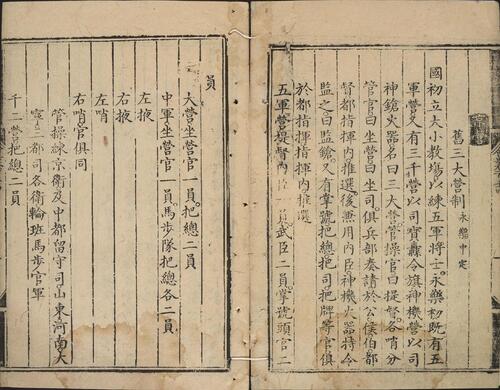 舊三大營制 永樂中定
國初立大小教場以練五軍將士永樂初既有五
軍營又有三千營以司寶纛令旗神機營以司
神鎗火器名曰三大營營操官曰提督各哨分
管官曰坐營曰坐司俱兵部奏請於公侯伯都
督都指揮內推選後兼用內臣神機火器特令
監之曰監鎗又有掌號把總把司把牌等官俱
於都指揮指揮內推選
五軍營提督內臣一員武臣二員掌號頭官二
員
大營坐營官一員把總二員
中軍坐營官一員馬步隊把總各二員
左掖
右掖
左哨
右哨官俱同
管操練京衛及中都留守司山東河南大
寧三都司各衛輪班馬步官軍
十二營把總二員